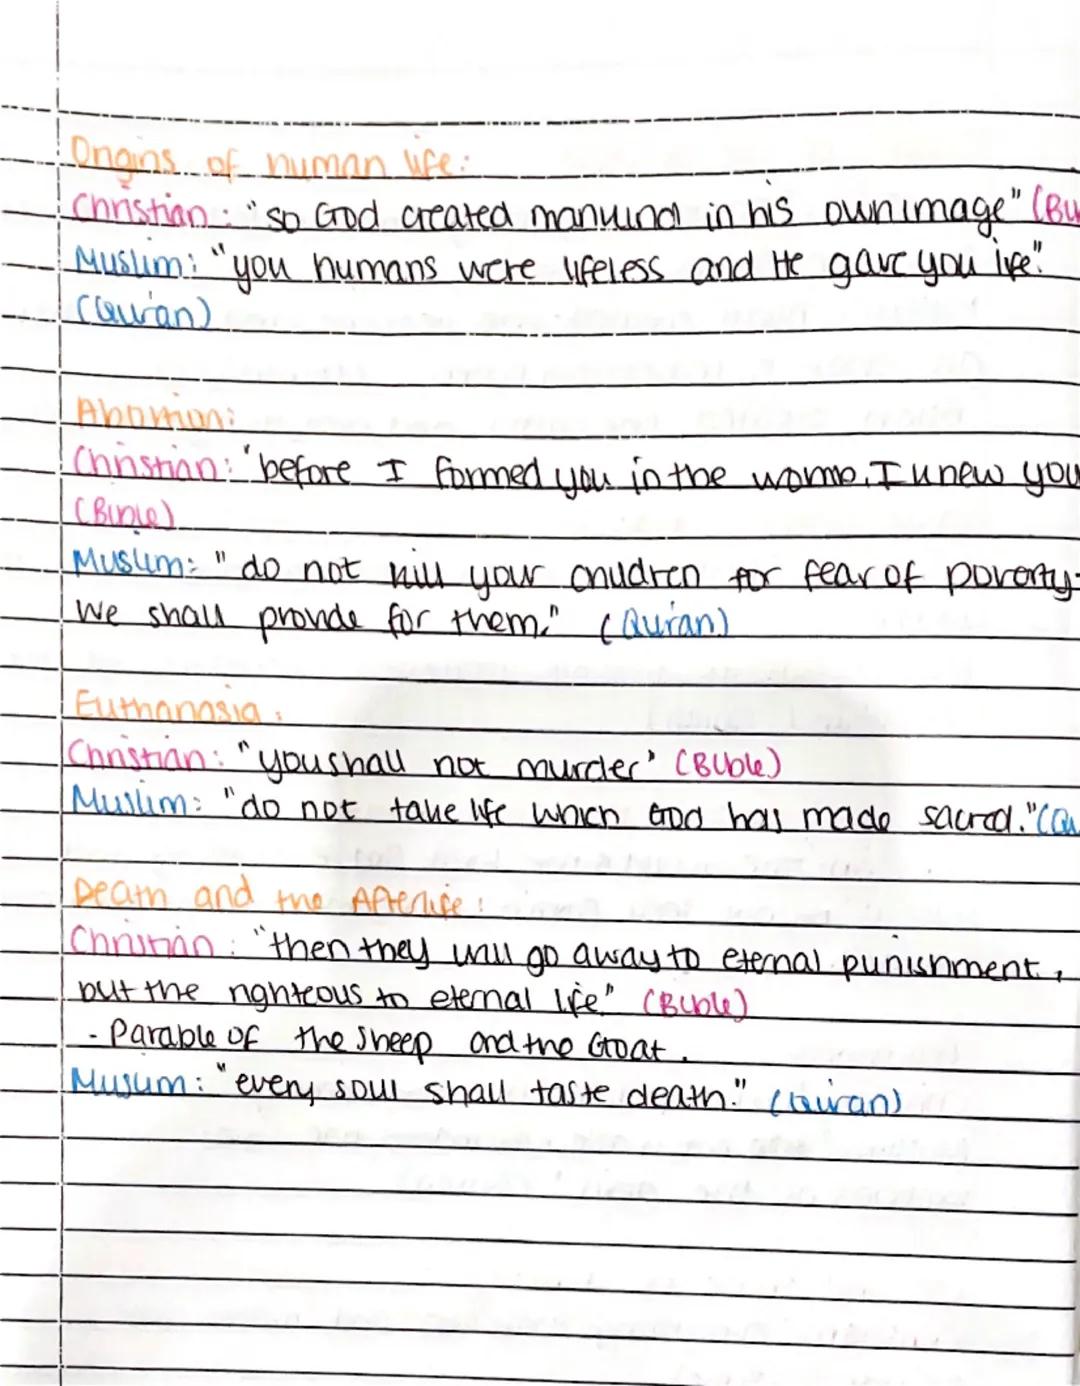 Origins of human life:
Christian: "so God created mankind in his own image" (Bi
Muslim: "you humans were lifeless and He gave you life."
(Qur'an)
Abortion:
Christian: 'before I formed you in the womb, I knew you
(Bible)
Muslim: "do not kill your children for fear of poverty-
We shall provide for them." (Qur'an)
Euthanasia:
Christian: "you shall not murder' (Bible)
Muslim: "do not take life which God has made sacred." (Qu
Death and the Afterlife:
Christian: "then they will go away to eternal punishment,
but the righteous to eternal life" (Bible)
- Parable of the Sheep and the Goat.
Muslim: "every soul shall taste death." (Qur'an)